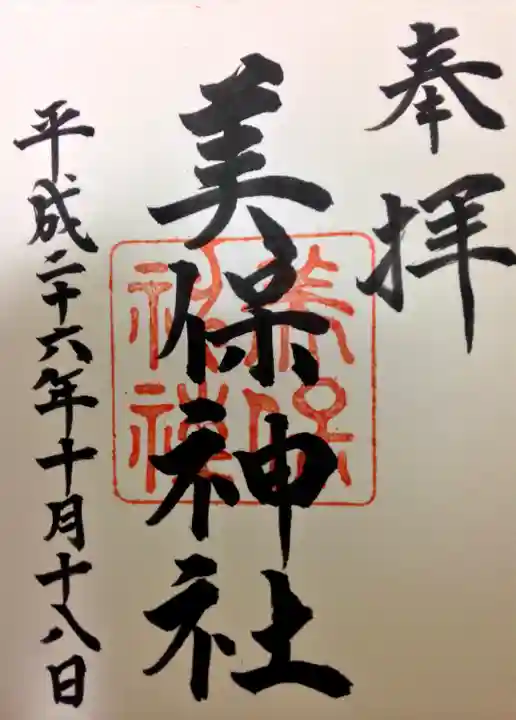 奉拝
美保神社
平成二十六年十月十八日